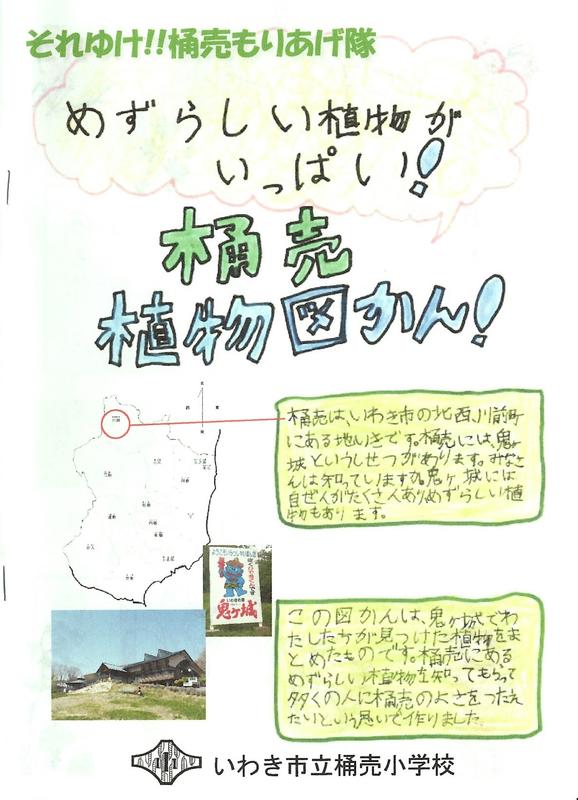 それゆけ!!桶売もりあげ隊
めずらしい植物が
いっぱい!
桶売
植物図かん!
桶売は、いわき市の北西、川前町
にある地いきです。桶売には鬼ヶ
城というしせつがあります。みなさ
んは知っていますか。鬼ヶ城には
自ぜんがたくさんありめずらしい植
物もあります。
鬼ヶ城
この図かんは、鬼ヶ城でわ
たしたちが見つけた植物をま
とめたものです。桶売にある
めずらしい植物を知ってもらって
多くの人に桶売のよさをつたえ
たいという思いで作りました。
いわき市立桶売小学校